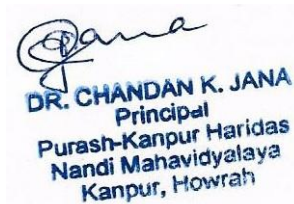 DR. CHANDAN K. JANA
Principal
Purash-Kanpur Haridas
Nandi Mahavidyalaya
Kanpur, Howrah